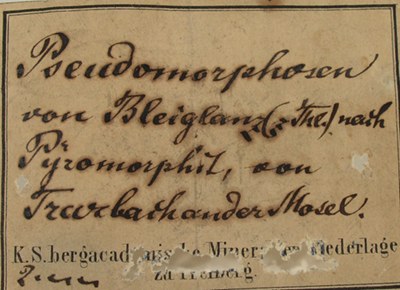 Pseudomorphosen
von Bleiglanz (Thl.) nach
Pyromorphit, von
Trarbach an der Mosel.
K.S.bergacademische Mineralienniederlage
zu Freiberg.